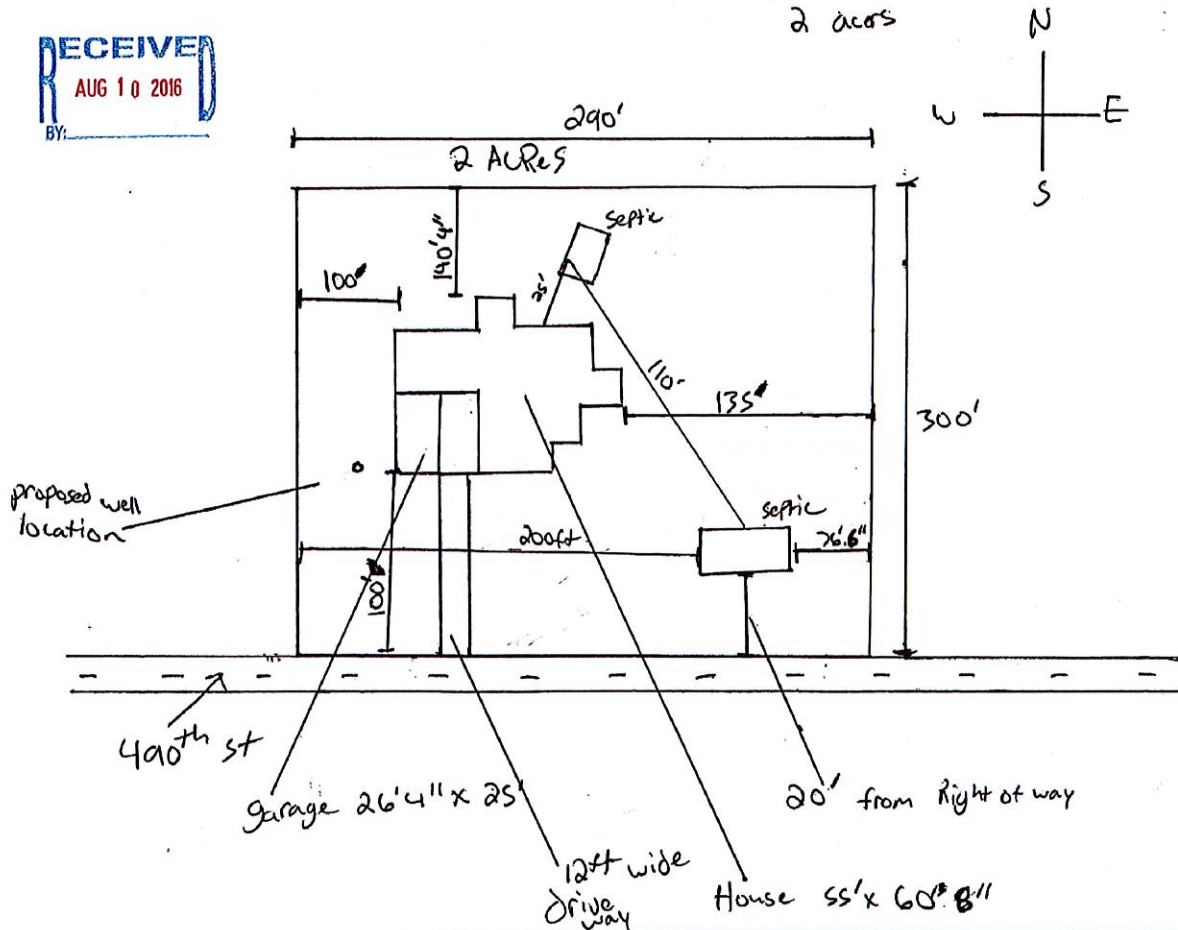 2 acors
N
W
E
S
RECEIVED
AUG 10 2016
BY:
290'
2 ACRES
septic
140'4"
100'
25'
110'
135'
300'
proposed well
location
septic
200ft
76'.6"
100'
490th st
garage 26'4" x 25'
12ft wide
drive
way
House 55' x 60' 8"
20' from Right of way